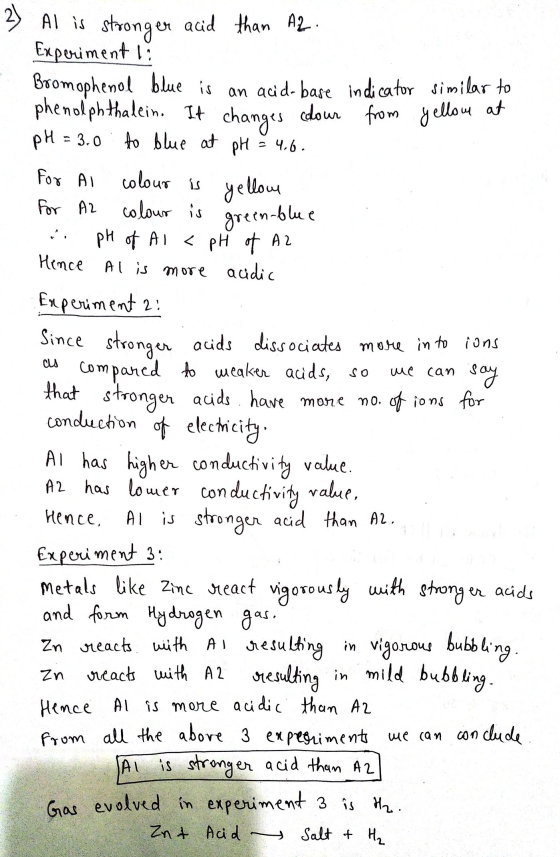 2) A1 is stronger acid than A2.
Experiment 1:
Bromophenol blue is an acid-base indicator similar to
phenolphthalein. It changes colour from yellow at
pH = 3.0 to blue at pH = 4.6.
For A1 colour is yellow
For A2 colour is green-blue
∴ pH of A1 < pH of A2
Hence A1 is more acidic
Experiment 2:
Since stronger acids dissociates more into ions
as compared to weaker acids, so we can say
that stronger acids have more no. of ions for
conduction of electricity.
A1 has higher conductivity value.
A2 has lower conductivity value.
Hence, A1 is stronger acid than A2.
Experiment 3:
Metals like Zinc react vigorously with stronger acids
and form Hydrogen gas.
Zn reacts with A1 resulting in vigorous bubbling.
Zn reacts with A2 resulting in mild bubbling.
Hence A1 is more acidic than A2
From all the above 3 experiments we can conclude
A1 is stronger acid than A2
Gas evolved in experiment 3 is H₂.
Zn + Acid → Salt + H₂